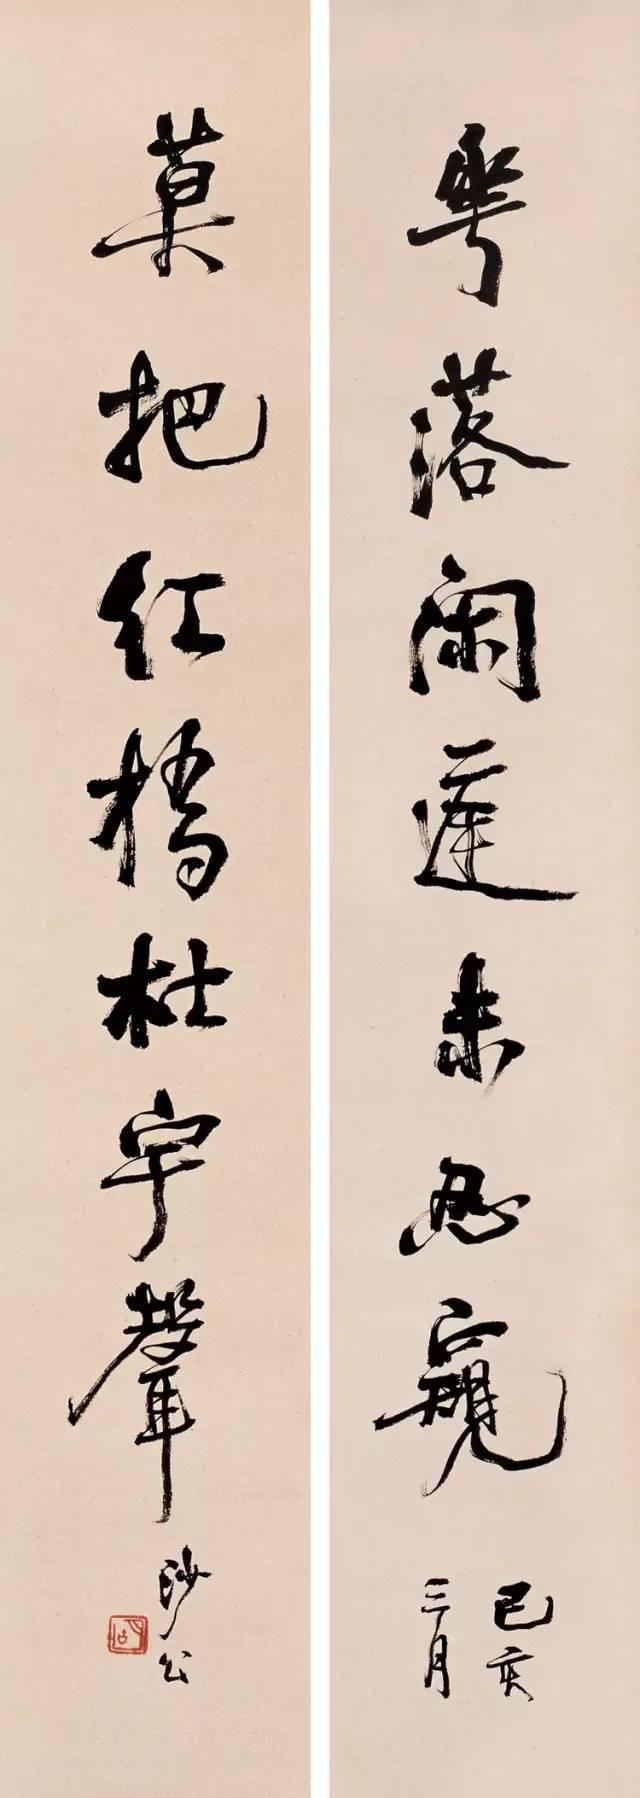 落閑未忍窺
己亥
三月
莫把紅橋杜宇聲
沙公